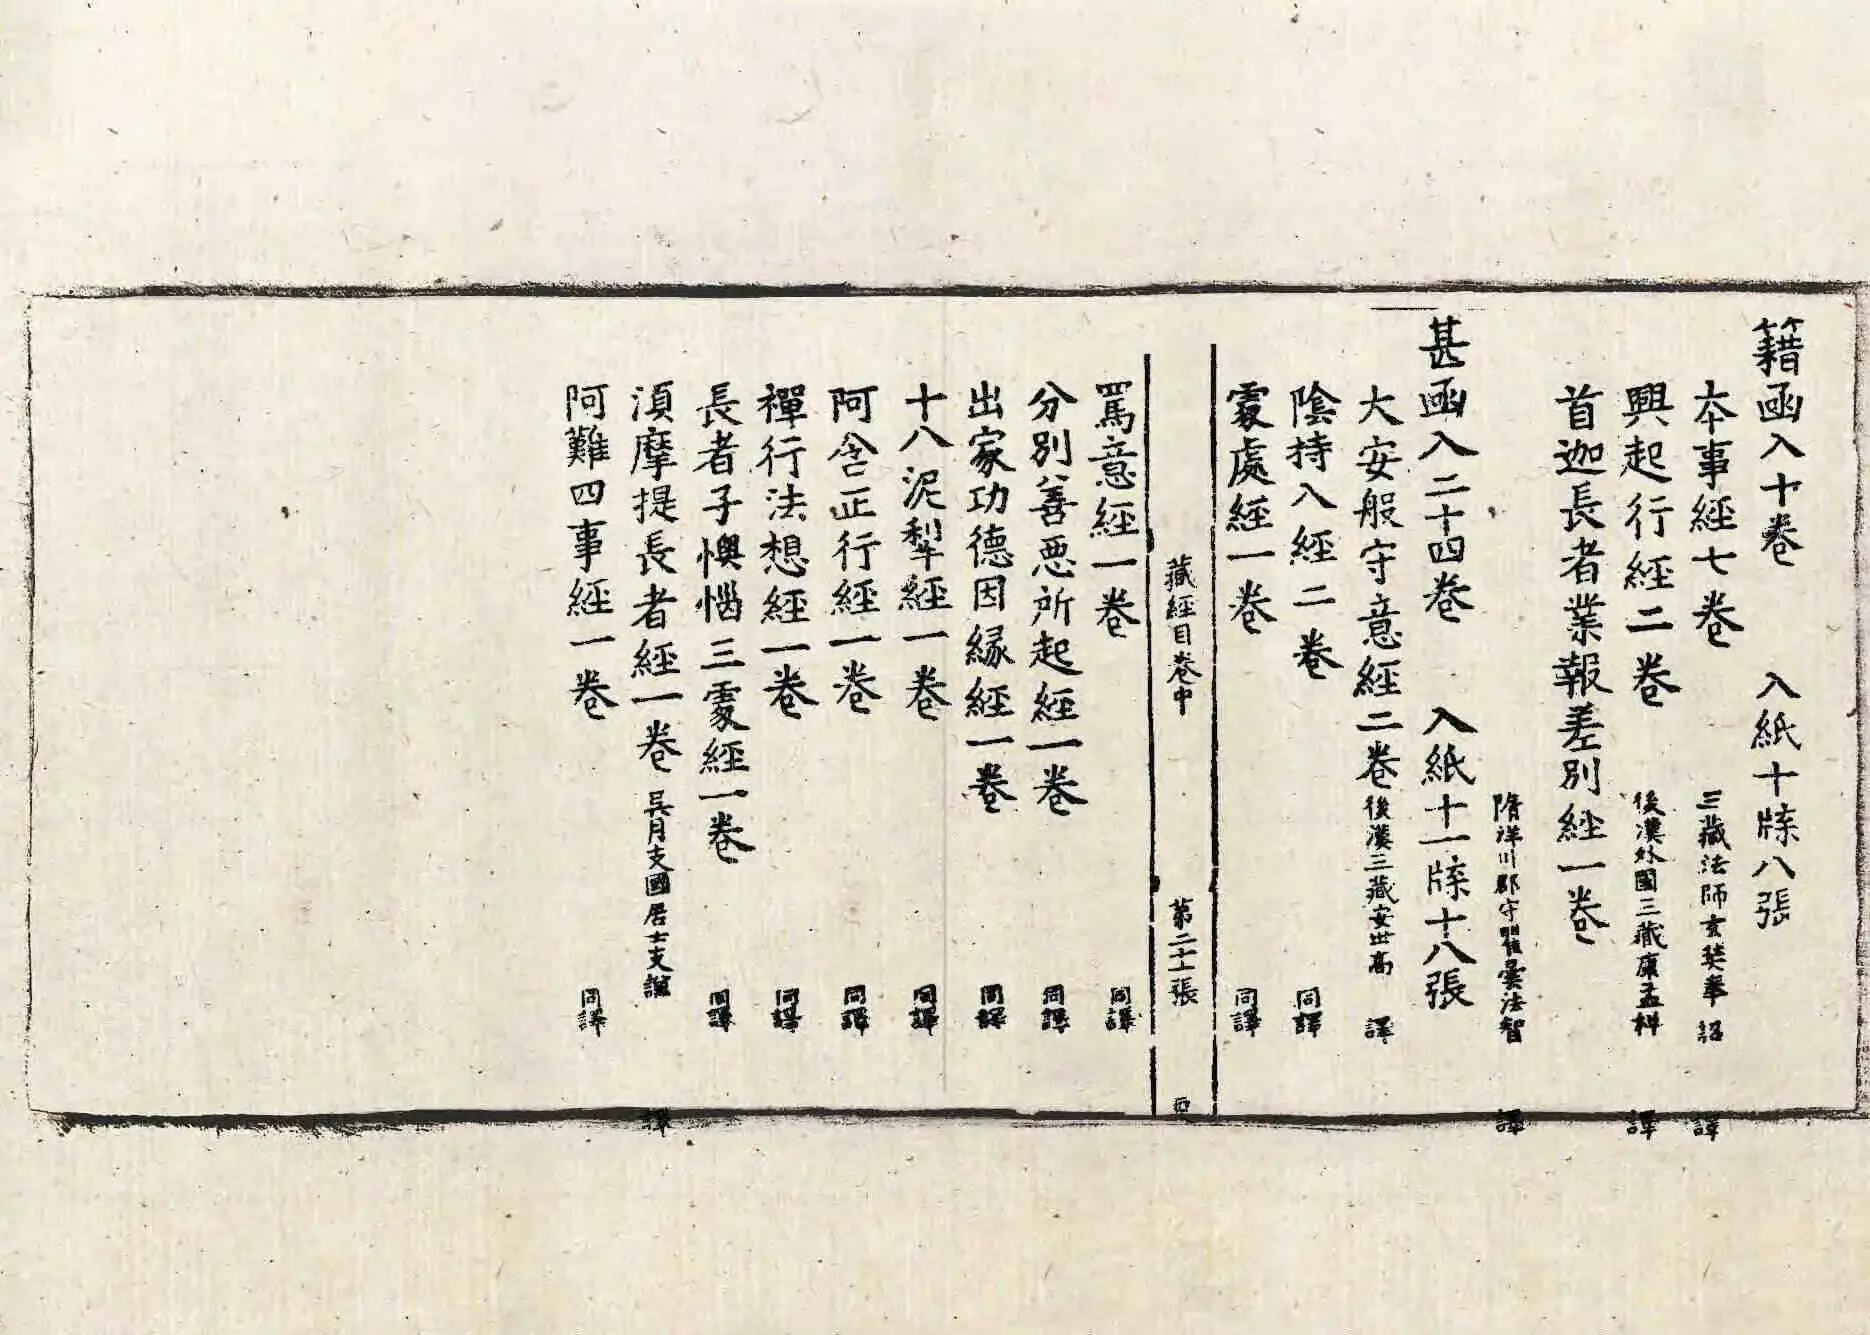 籍函入十卷 入紙十牒八張
本事經七卷 三藏法師玄奘奉 詔 譯
興起行經二卷 後漢外國三藏康孟祥 譯
首迦長者業報差別經一卷
隋洋川郡守瞿曇法智 譯
甚函入二十四卷 入紙十一牒十八張
大安般守意經二卷 後漢三藏安世高 譯
陰持入經二卷 同譯
處處經一卷 同譯
藏經目卷中 第二十一張
罵意經一卷 同譯
分別善惡所起經一卷 同譯
出家功德因緣經一卷 同譯
十八泥犁經一卷 同譯
阿含正行經一卷 同譯
禪行法想經一卷 同譯
長者子懊惱三處經一卷 同譯
須摩提長者經一卷 吳月支國居士支謙 譯
阿難四事經一卷 同譯